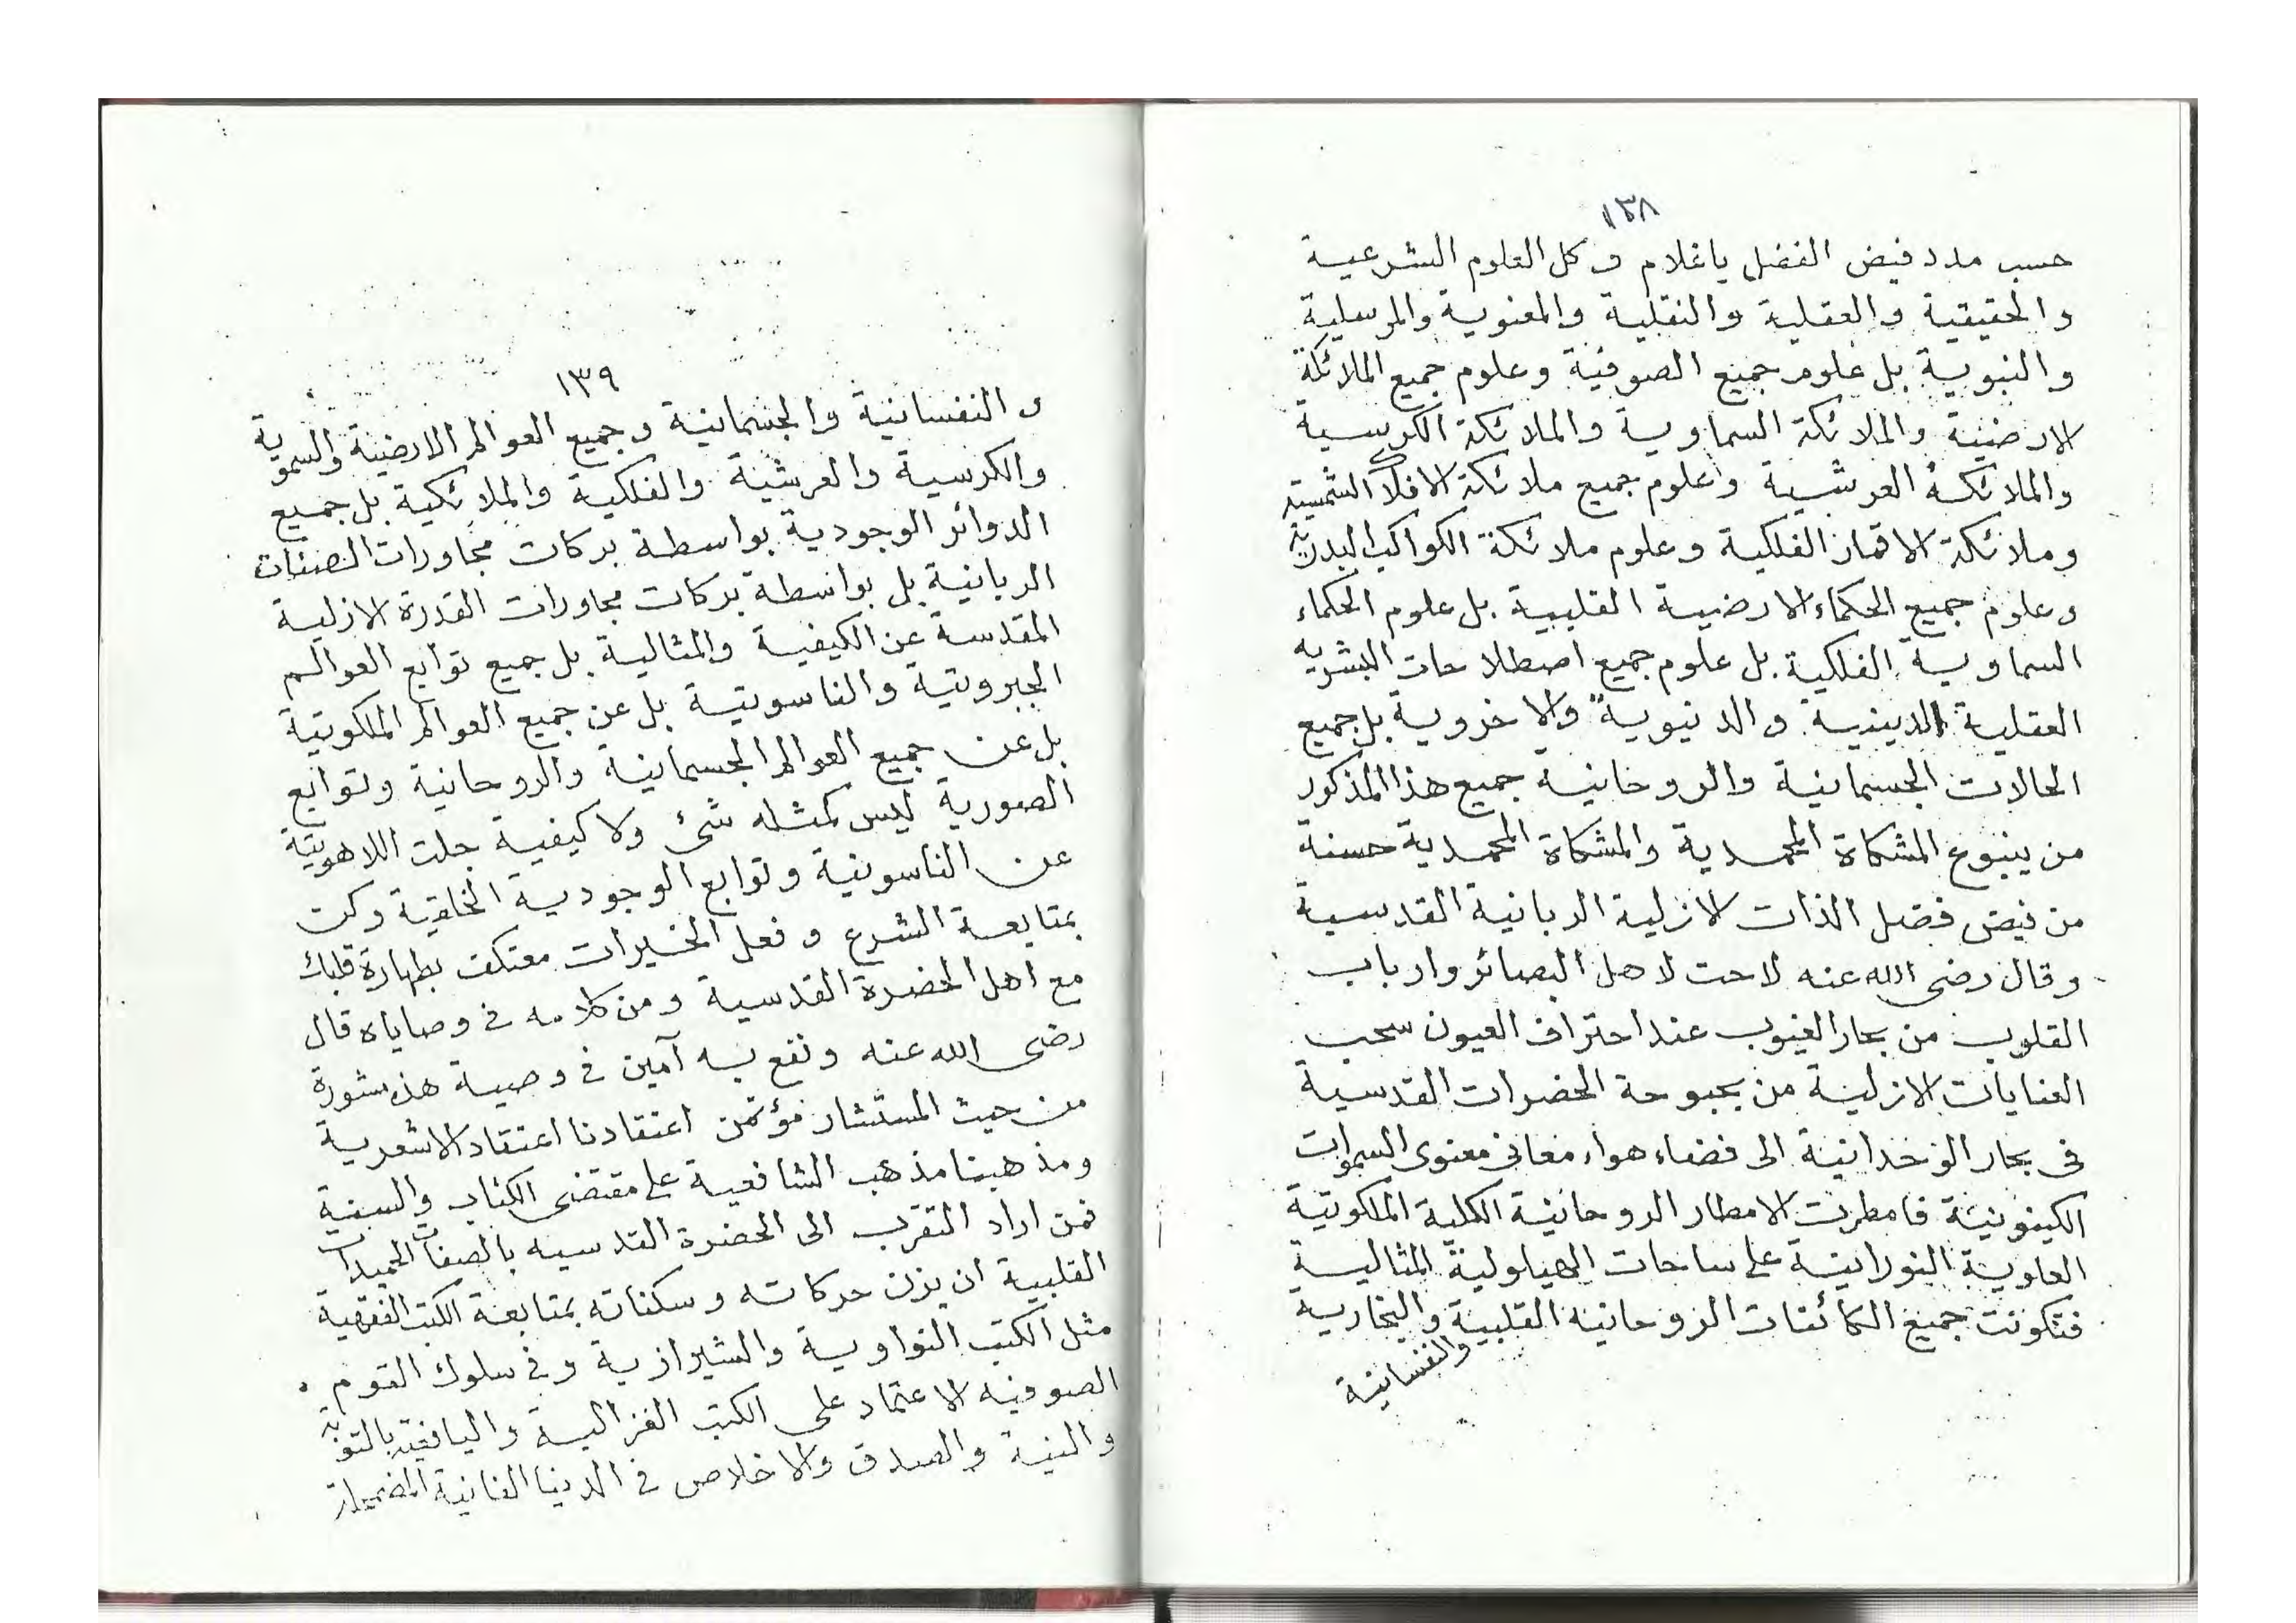 ١٣٨
حسب مدد فيض الفضل ياغلام وكل العلوم الشرعية
والحقيقية والعقلية والنقلية والمعنوية والمرسلية
والنبوية بل علوم جميع الصوفية وعلوم جميع الملائكة
الارضية والملائكة السماوية والملائكة الكرسية
والملائكة العرشية وعلوم جميع ملائكة الافلاك الشمسية
وملائكة الاقمار الفلكية وعلوم ملائكة الكواكب البدرية
وعلوم جميع الحكماء الارضية القلبية بل علوم الحكماء
السماوية الفلكية بل علوم جميع اصطلاحات البشريه
العقلية الدينية والدنيوية والاخروية بل جميع
الحالات الجسمانية والروحانية جميع هذا المذكور
من ينبوع المشكاة المحمدية والمشكاة المحمدية حسنة
من فيض فضل الذات الازلية الربانية القدسية
وقال رضى الله عنه لاحت لاهل البصائر وارباب
القلوب من بحار الغيوب عند احتراف العيون سحب
العنايات الازلية من بحبوحة الحضرات القدسية
فى بحار الوحدانية الى فضاء هواء معانى معنوى السموات
الكينونية فامطرت الامطار الروحانية الكلية الملكوتية
العلوية النورانية على ساحات الهياولية المثالية
فتكونت جميع الكائنات الروحانيه القلبية والبخارية
والنفسانية
١٣٩
و النفسانية والجسمانية وجميع العوالم الارضية والسموية
والكرسية والعرشية والفلكية والملائكية بل جميع
الدوائر الوجودية بواسطة بركات مجاورات الصفات
الربانية بل بواسطة بركات مجاورات القدرة الازلية
المقدسة عن الكيفية والمثالية بل جميع توابع العوالم
الجبروتية والناسوتية بل عن جميع العوالم الملكوتية
بل عن جميع العوالم الجسمانية والروحانية وتوابع
الصورية ليس كمثله شئ ولا كيفية جلت اللاهوتية
عن الناسوتية وتوابع الوجودية الخلقية وكن
بمتابعة الشرع وفعل الخيرات معتكف بطهارة قلبك
مع اهل الحضرة القدسية ومن كلامه فى وصاياه قال
رضى الله عنه ونفع به آمين فى وصية هذه شورة
من حيث المستشار مؤتمن اعتقادنا اعتقاد الاشعرية
ومذهبنا مذهب الشافعية على مقتضى الكتاب والسنة
فمن اراد التقرب الى الحضرة القدسيه بالصفات الحميدات
القلبية ان يزن حركاته وسكناته بمتابعة الكتب الفقهية
مثل الكتب النواوية والشيرازية وفى سلوك القوم
الصوفيه الاعتماد على الكتب الغزالية واليافعية بالتوبة
والنية والصدق والاخلاص فى الدنيا الفانية المضمحلة